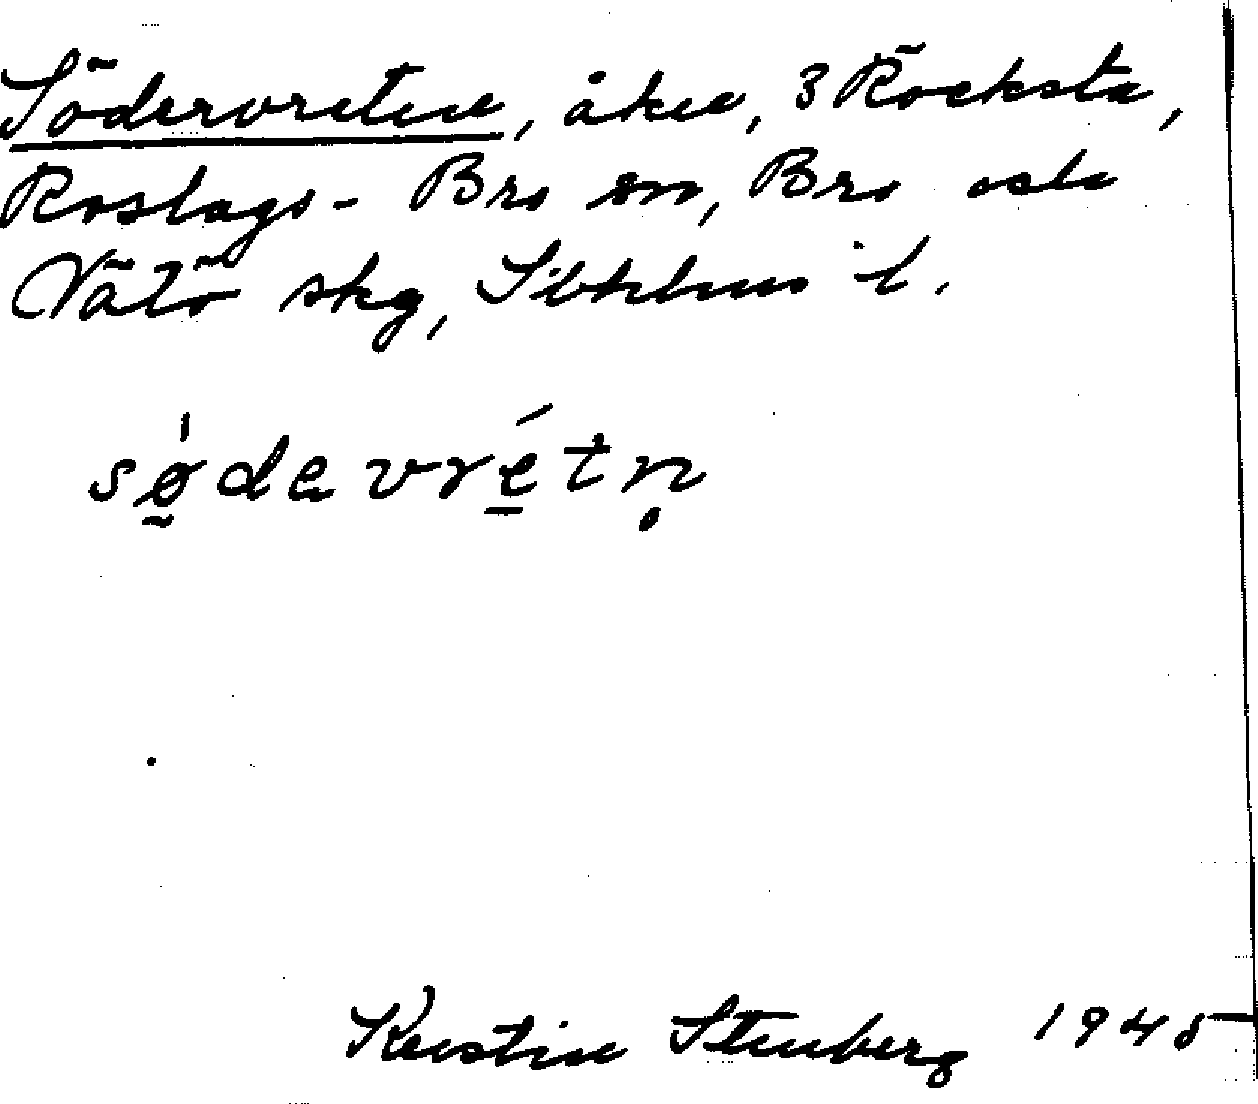 Södervreten, åker, 3 Röcksta,
Roslags-Bro sn, Bro och
Vätö skg, Sthlms l.
sødavretn̥
Kerstin Stenberg 1945